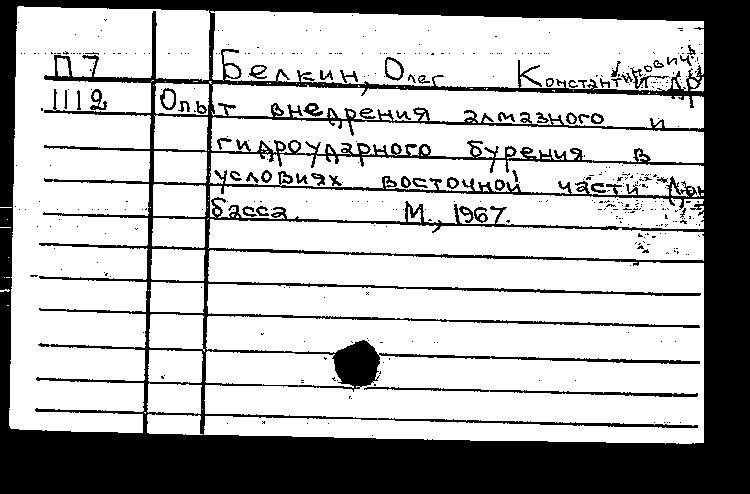 П7 Белкин, Олег Константинович и др
1112 Опыт внедрения алмазного и
гидроударного бурения в
условиях восточной части Дон
басса. М., 1967.